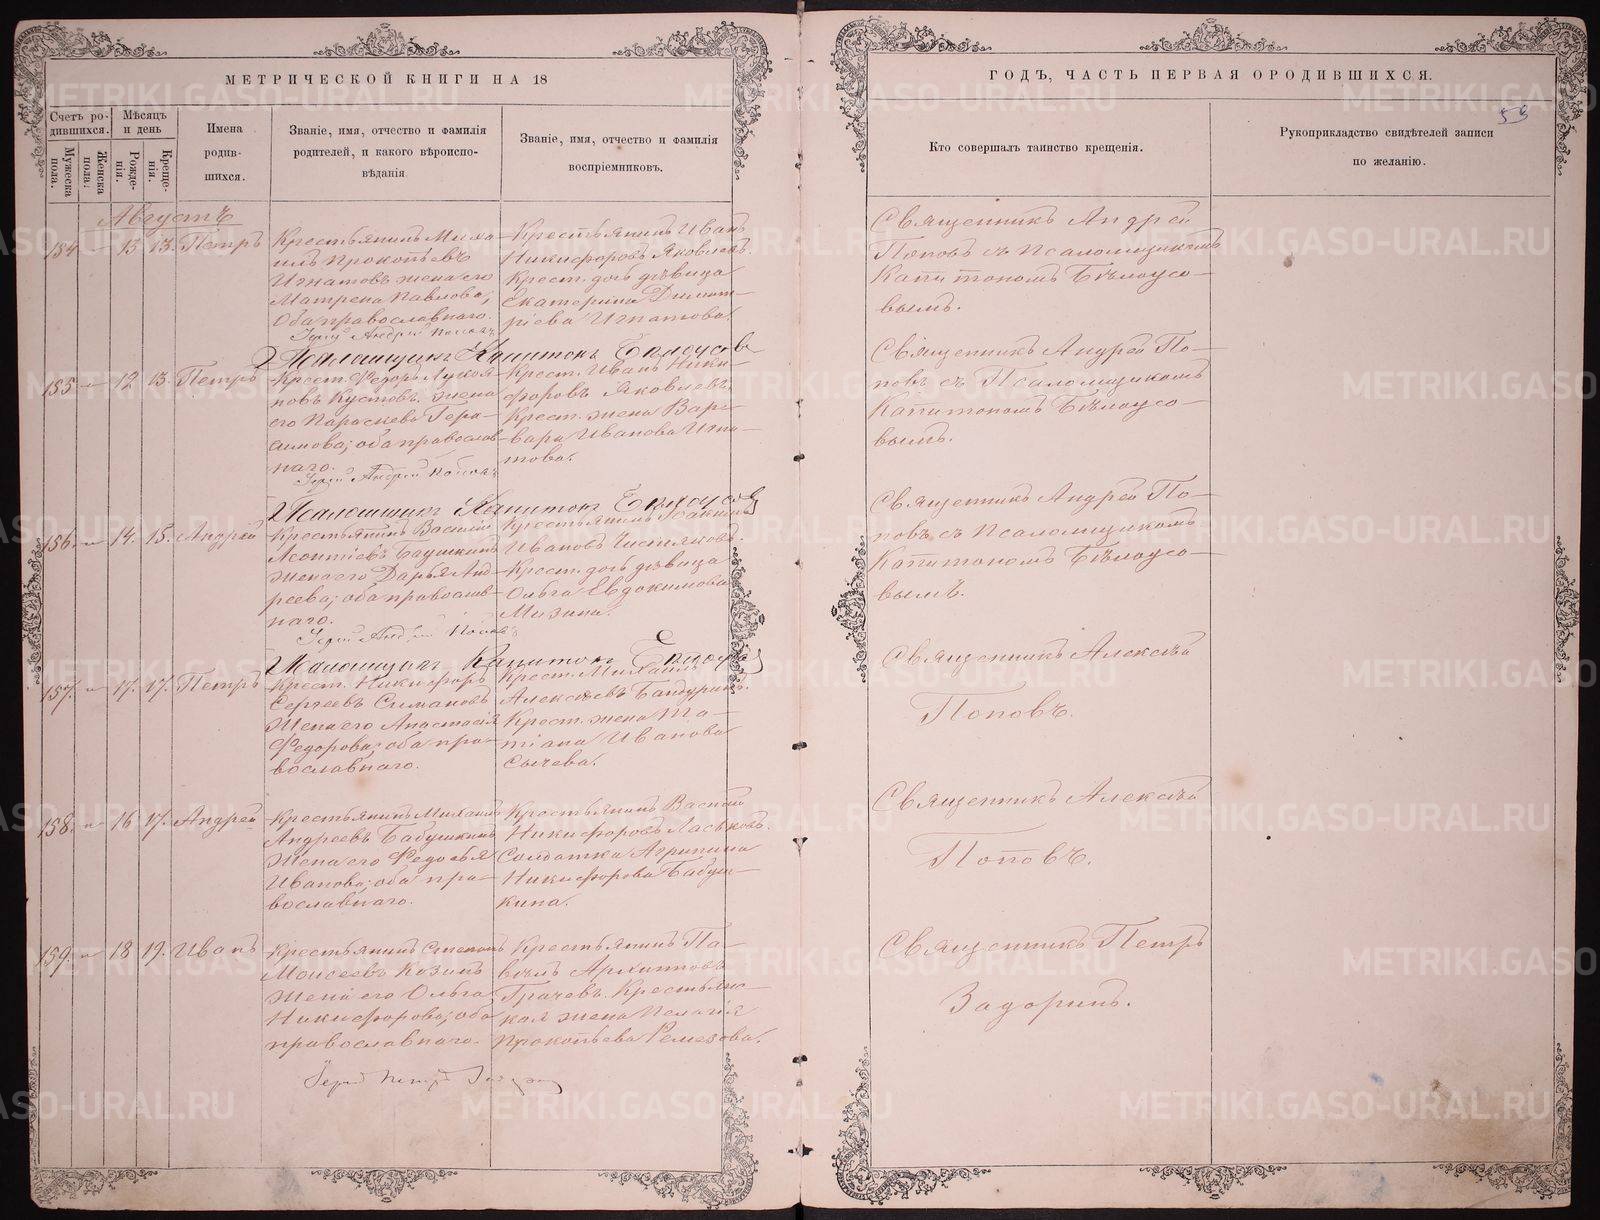 МЕТРИЧЕСКОЙ КНИГИ НА 18
Счетъ ро-
дившихся.
Мужеска
пола.
Женска
пола:
Мѣсяцъ
и день
Рожде-
нія.
Креще-
нія.
Имена
родив-
шихся.
Званіе, имя, отчество и фамилія
родителей, и какого вѣроиспо-
вѣданія
Званіе, имя, отчество и фамилія
воспріемниковъ.
ГОДЪ, ЧАСТЬ ПЕРВАЯ О РОДИВШИХСЯ.
Кто совершалъ таинство крещенія.
Рукоприкладство свидѣтелей записи
по желанію.
Августъ
154 13 13. Петръ
Крестьянинъ Миха
илъ Прокопьевъ
Игнатовъ жена его
Матрена Павлова;
Оба православнаго.
Іерей Андрей Поповъ
Псаломщикъ Капитонъ Белоусов
Крестьянинъ Иванъ
Никифоровъ Яковлевъ.
Крест. дочь дѣвица
Екатерина Димит-
ріева Игнатова.
Священникъ Андрей
Поповъ съ Псаломщикомъ
Капитономъ Бѣлоусо-
вымъ.
155 12 13. Петръ
Крест. Федоръ
Кустовъ. жена
его Параскева Гера-
симова; оба православ-
наго.
Іерей Андрей Поповъ
Псаломщикъ Капитонъ Белоусов
Крест. Иванъ Ники-
форовъ Яковлевъ.
Крест. жена Вар-
вара Иванова Игна-
това.
Священникъ Андрей По-
повъ съ Псаломщикомъ
Капитономъ Бѣлоусо-
вымъ.
156. 14. 15. Андрей
Крестьянинъ Василій
Леонтіевъ
Жена его Дарья Анд-
реева; оба православ-
наго.
Іерей Андрей Поповъ
Псаломщикъ Капитонъ Белоусов
Крестьянинъ
Ивановъ Чистяковъ.
Крест. дочь дѣвица
Ольга Евдокимова
Мизина.
Священникъ Андрей По-
повъ съ Псаломщикомъ
Капитономъ Бѣлоусо-
вымъ.
157. 17. 17. Петръ
Крест. Никифоръ
Сергеевъ Симановъ
Жена его Анастасія
Федорова; оба пра-
вославнаго.
Крест. Михаилъ
Алексѣевъ Бандуринъ.
Крест. жена Та-
тіана Иванова
Сычева.
Священникъ Алексѣй
Поповъ.
158. 16 17. Андрей
Крестьянинъ Михаилъ
Андреевъ Бабушкинъ
Жена его Федосья
Иванова; оба пра-
вославнаго.
Крестьянинъ Василій
Никифоровъ Ласьковъ.
Солдатка Агрипина
Никифорова Бабуш-
кина.
Священникъ Алексѣй
Поповъ.
159. 18 19. Иванъ
Крестьянинъ Степанъ
Моисеевъ Козинъ
Жена его Ольга
Никифорова; оба
православнаго.
Іерей Петръ
Крестьянинъ Па-
велъ Архиповъ
Грачевъ. Крестьянс-
кая жена Пелагія
Прокопьева Ремезова.
Священникъ Петръ
Задоринъ.
METRIKI.GASO-URAL.RU